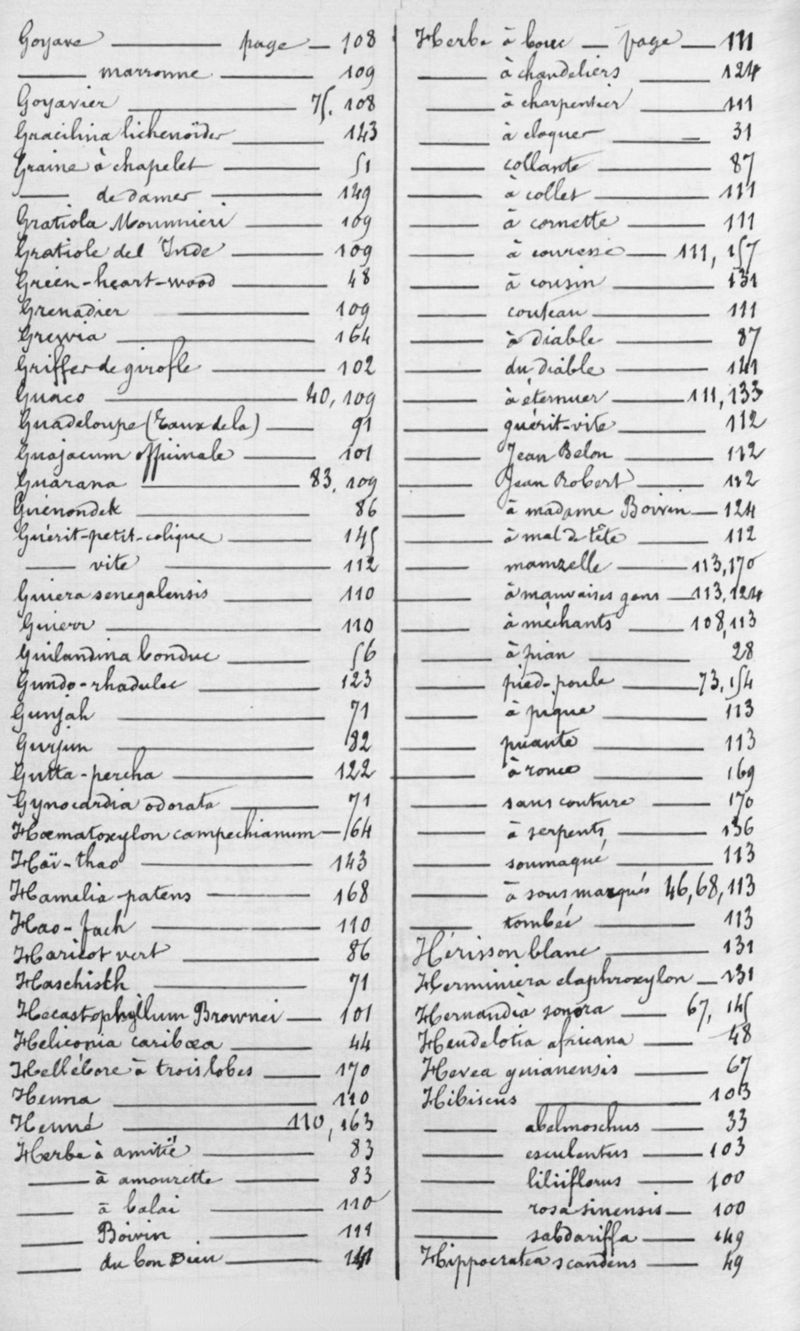 Goyave — page — 108
— marronne — 109
Goyavier — 75, 108
Gracilina lichenoïdes — 143
Graine à chapelet — 51
— de dames — 149
Gratiola Monnieri — 109
Gratiole del Inde — 109
Green-heart-wood — 48
Grenadier — 109
Grewia — 164
Griffes de girofle — 102
Guaco — 40, 109
Guadeloupe (Eaux de la) — 91
Guajacum officinale — 101
Guarana — 83, 109
Guénondek — 86
Guérit-petit-colique — 145
— vite — 112
Guiera senegalensis — 110
Guierr — 110
Guilandina bonduc — 56
Gundo-rhadulec — 123
Gunjah — 71
Gurjun — 82
Gutta-percha — 122
Gynocardia odorata — 71
Hœmatoxylon campechianum — 64
Haï-thao — 143
Hamelia patens — 168
Hao-fach — 110
Haricot vert — 86
Haschisth — 71
Hecastophyllum Brownei — 101
Heliconia caribœa — 44
Hellébore à trois lobes — 170
Henna — 110
Henné — 110, 163
Herbe à amitié — 83
— à amourette — 83
— à balai — 110
— Boivin — 111
— du bon Dieu — 141
Herbe à bouc — page — 111
— à chandeliers — 124
— à charpentier — 111
— à cloques — 31
— collante — 87
— à collet — 111
— à cornette — 111
— à couresse — 111, 157
— à cousin — 131
— couteau — 111
— à diable — 87
— du diable — 141
— à éternuer — 111, 133
— guérit-vite — 112
— Jean Belon — 112
— Jean Robert — 112
— à madame Boivin — 124
— à mal de tête — 112
— mamzelle — 113, 170
— à mauvaises gens — 113, 124
— à méchants — 108, 113
— à pian — 28
— pied-poule — 73, 154
— à pique — 113
— puante — 113
— à roues — 169
— sans couture — 170
— à serpents — 136
— soumaqué — 113
— à sous marqués 46, 68, 113
— tombée — 113
Hérisson blanc — 131
Herminiera elaphroxylon — 131
Hernandia sonora — 67, 145
Heudelotia africana — 48
Hevea guianensis — 67
Hibiscus — 103
— abelmoschus — 33
— esculentus — 103
— liliiflorus — 100
— rosa sinensis — 100
— sabdariffa — 149
Hippocratea scandens — 49